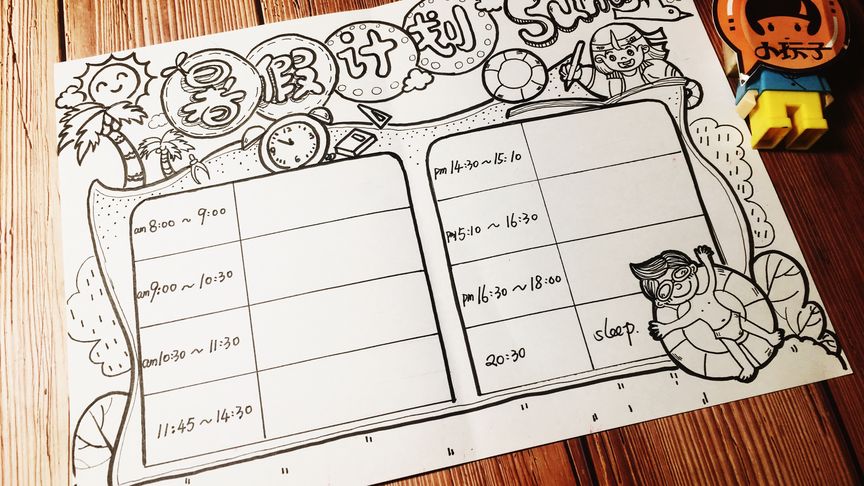 暑假计划
am 8:00 ~ 9:00
am 9:00 ~ 10:30
am 10:30 ~ 11:30
11:45 ~ 14:30
pm 14:30 ~ 15:10
pm 5:10 ~ 16:30
pm 16:30 ~ 18:00
20:30 sleep.